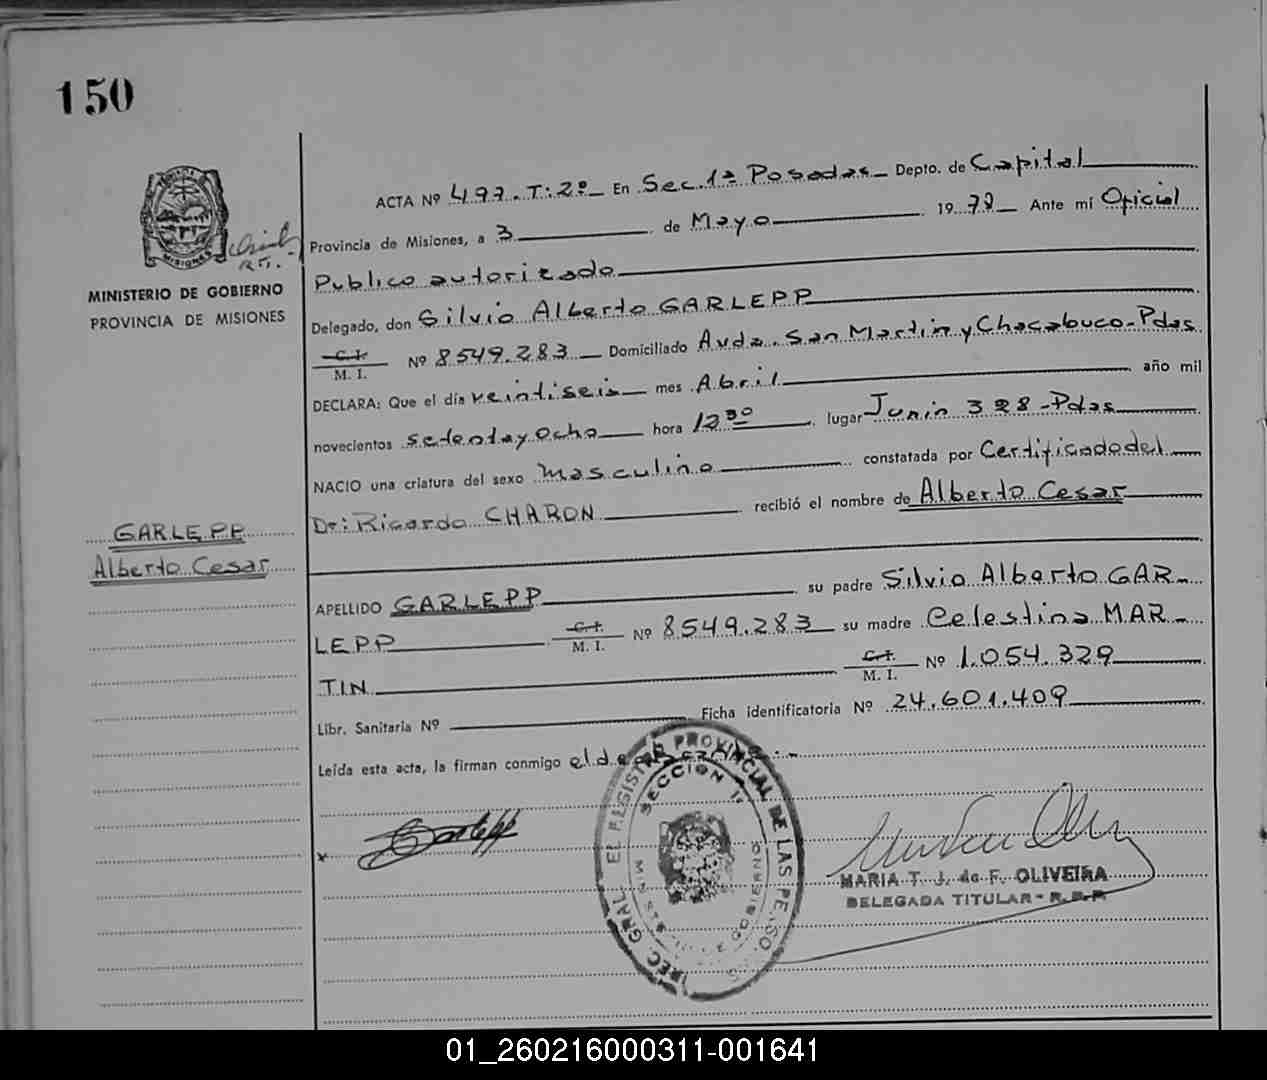 150
MISIONES
MINISTERIO DE GOBIERNO
PROVINCIA DE MISIONES
GARLEPP
Alberto Cesar
ACTA Nº 497. T: 2º En Sec. 1ª Posadas Depto. de Capital
Provincia de Misiones, a 3 de Mayo 1978 Ante mí Oficial
Publico autorizado
Delegado, don Silvio Alberto GARLEPP
C.I. M. I. Nº 8549.283 Domiciliado Avda. San Martin y Chacabuco-Pdas
DECLARA: Que el día veintiseis mes Abril año mil
novecientos setenta y ocho hora 12 30 lugar Junin 328-Pdas
NACIO una criatura del sexo masculino constatada por Certificado del
Dr: Ricardo CHARON recibió el nombre de Alberto Cesar
APELLIDO GARLEPP su padre Silvio Alberto GAR-
LEPP C.I. M. I. Nº 8549.283 su madre Celestina MAR-
TIN C.I. M. I. Nº 1.054.329
Libr. Sanitaria Nº Ficha identificatoria Nº 24.601.409
Leída esta acta, la firman conmigo el
x Garlepp
SECCION 1ª
MARIA T. J. de F. OLIVEIRA
DELEGADA TITULAR - R.P.P.
01_260216000311-001641